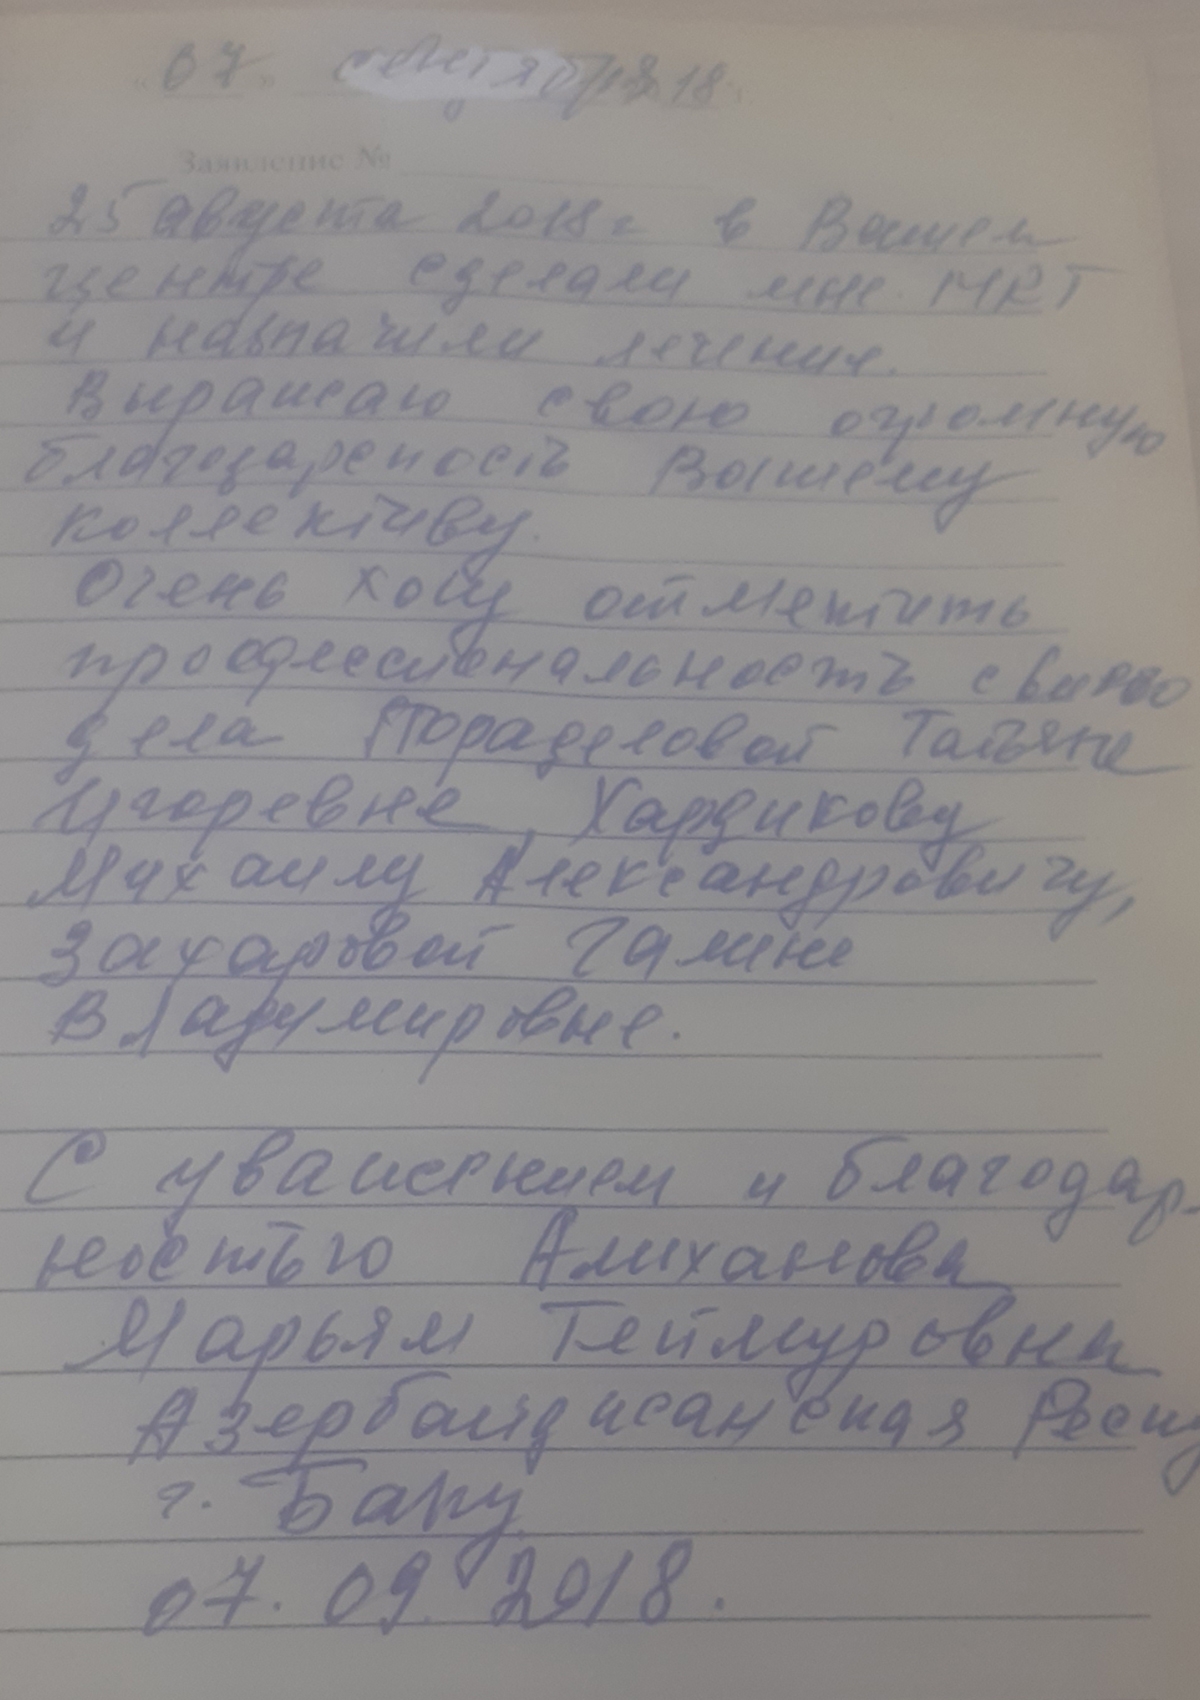 "07" сентября 18
Заявление №
25 августа 2018 г в Вашем
центре сделали мне МRТ
и назначили лечения.
Выражаю свою огромную
благодареность Вашему
коллективу.
Очень хочу отметить
профессиональность своего
дела Пораделовой Татьяне
Игоревне, Хардикову
Михаилу Александровичу,
Захаровой Галине
Владимировне.
С уважением и благодар-
ностью Алиханова
Марьям Теймуровна
Азербайджанская Респу
г. Баку
07. 09. 2018.